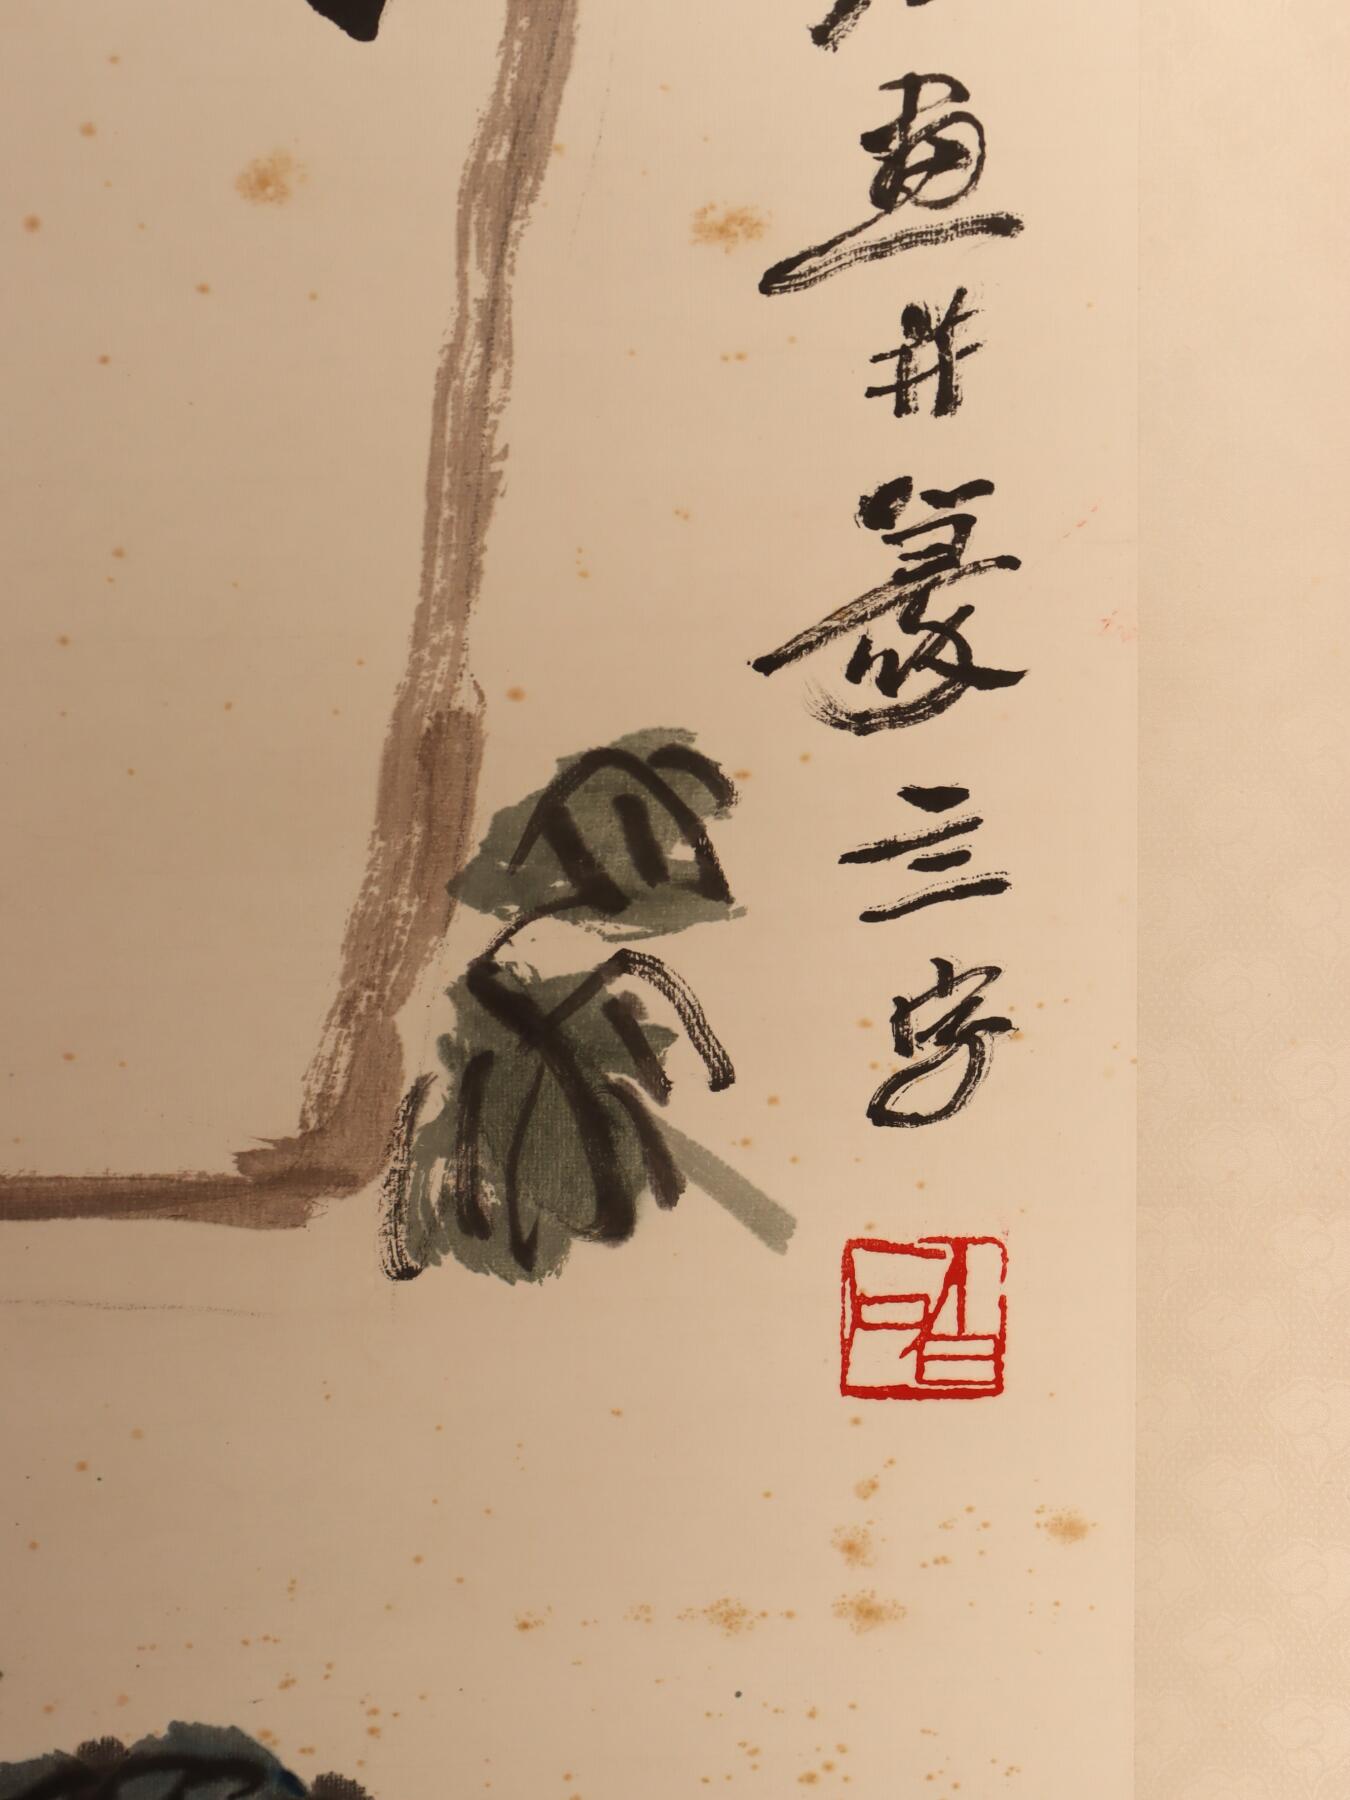 畫并篆三字